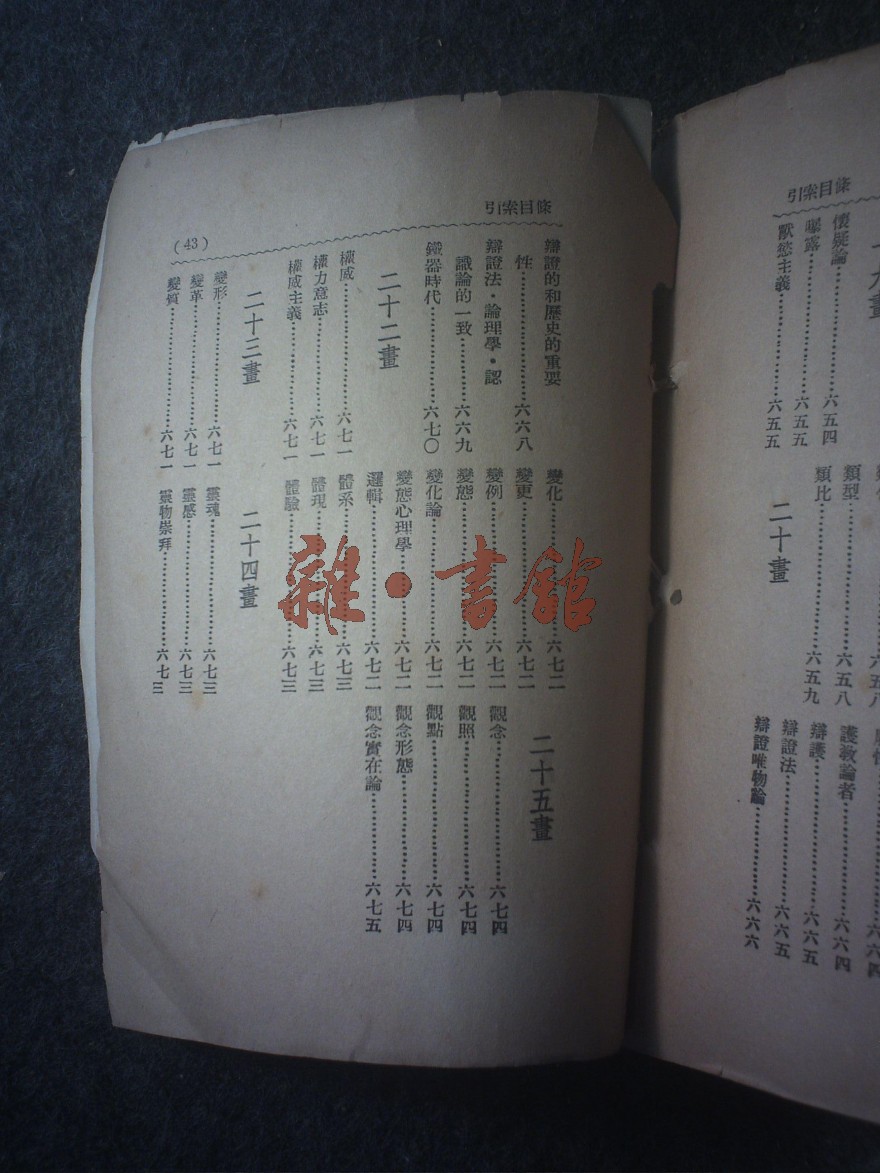 條目索引
懷疑論……六五四
曝露……六五五
獸慾主義……六五五
類型……六五八
類比……六五九
二十畫
護教論者……六六四
辯護……六六五
辯證法……六六五
辯證唯物論……六六六
條目索引
(43)
辯證的和歷史的重要
性……六六八
辯證法·論理學·認
識論的一致……六六九
鐵器時代……六七〇
二十二畫
權威……六七一
權力意志……六七一
權威主義……六七一
二十三畫
變形……六七一
變革……六七一
變質……六七一
變化……六七二
變更……六七二
變例……六七二
變態……六七二
變化論……六七二
變態心理學……六七二
邏輯……六七二
體系……六七三
體現……六七三
體驗……六七三
二十四畫
靈魂……六七三
靈感……六七三
靈物崇拜……六七三
二十五畫
觀念……六七四
觀照……六七四
觀點……六七四
觀念形態……六七四
觀念實在論……六七五
雜·書館